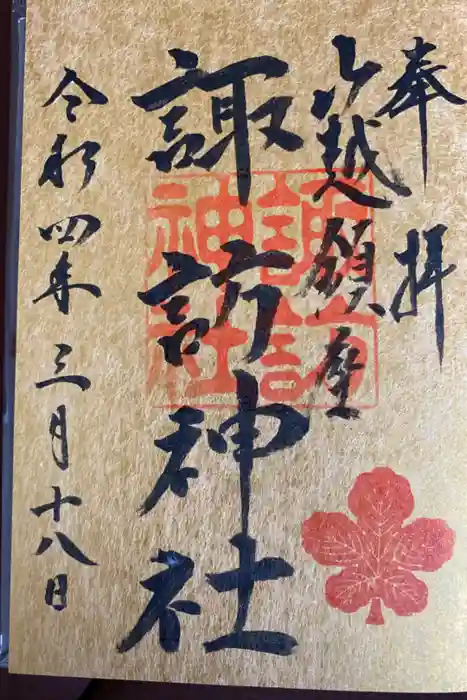 奉拝
山越鎮座
諏訪神社
諏訪神社
令和四年三月十八日